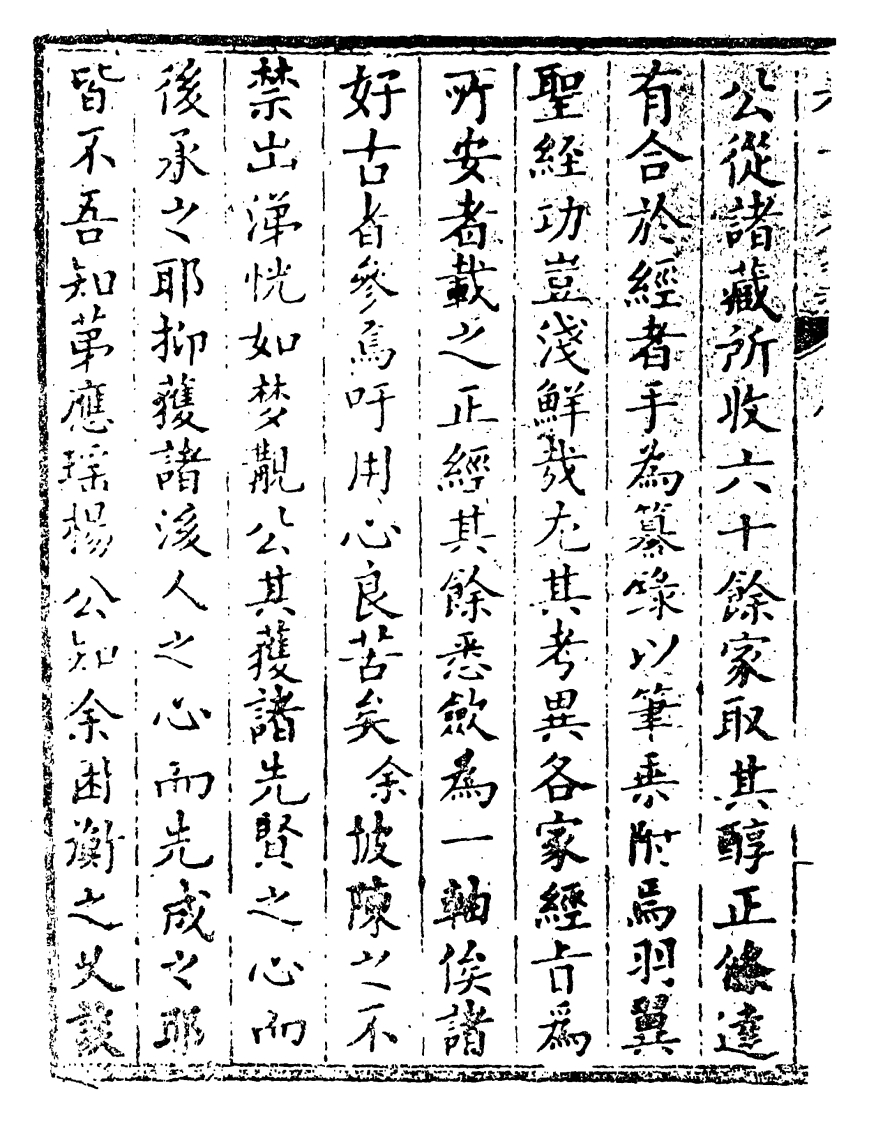 公從諸藏所收六十餘家取其醇正條達
有合於經者手為纂錄以筆乘附焉羽翼
聖経功豈淺鮮哉尤其考異各家經旨為
所安者載之正經其餘悉斂為一軸俟諸
好古者參焉吁用心良苦矣余披陳之不
禁出涕恍如梦覯公其獲諸先賢之心而
後承之耶抑獲諸後人之心而先成之耶
皆不吾知苐應瑤楊公知余困衡之久談